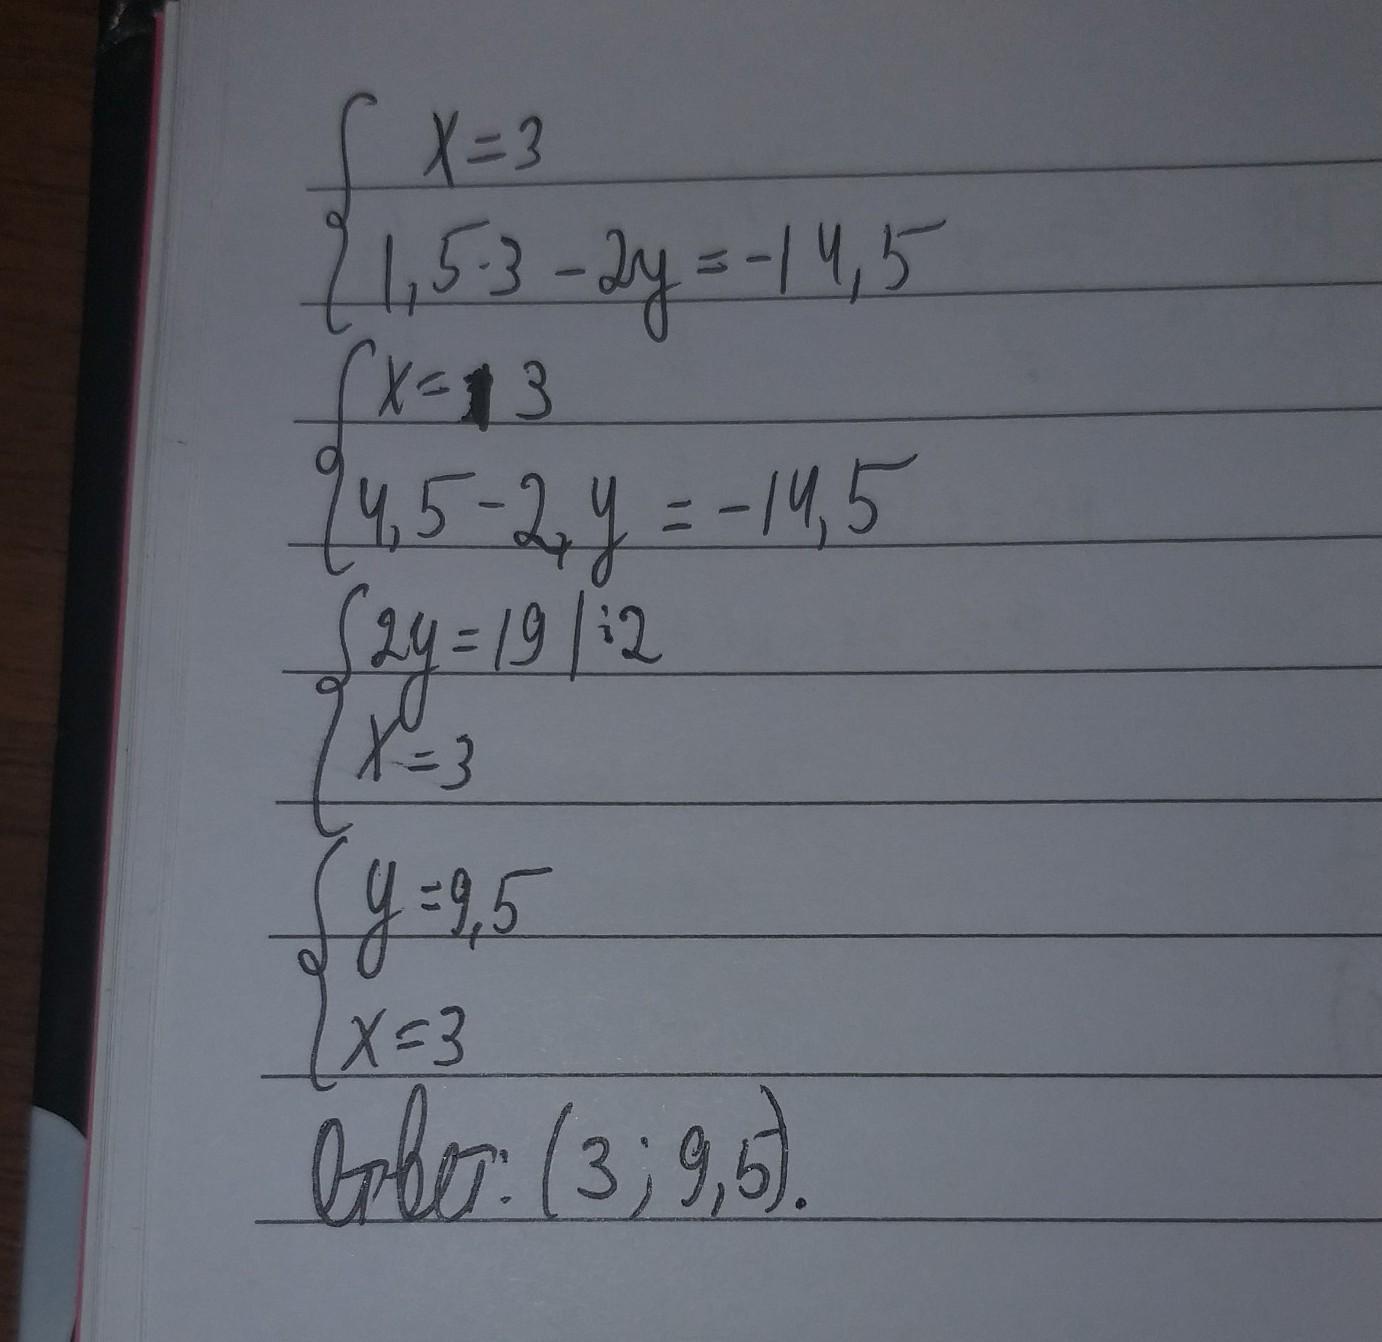 x=3
1,5·3-2y=-14,5
x=3
4,5-2,y=-14,5
2y=19|:2
x=3
y=9,5
x=3
Ответ: (3; 9,5).